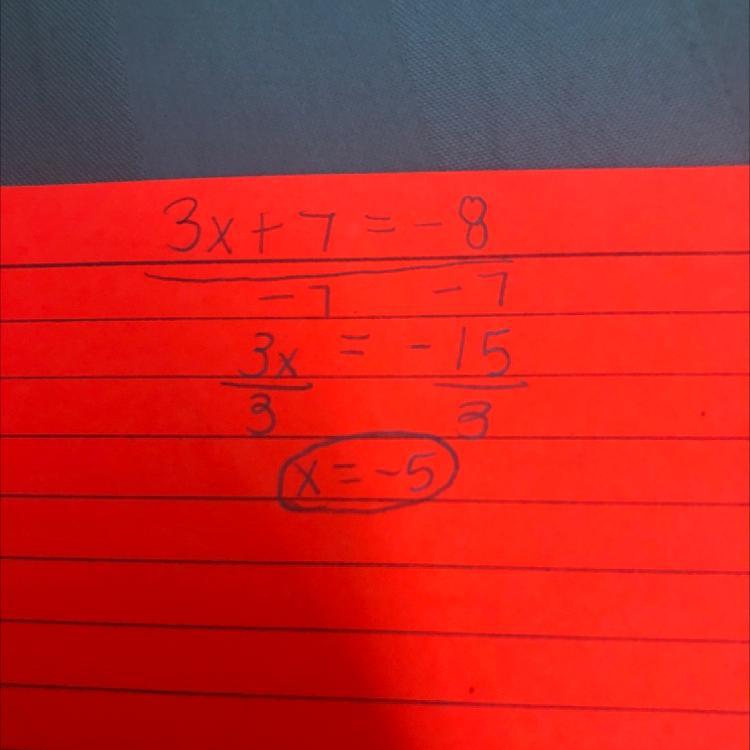 3x + 7 = - 8
- 7 - 7
3x = - 15
3 3
x = - 5